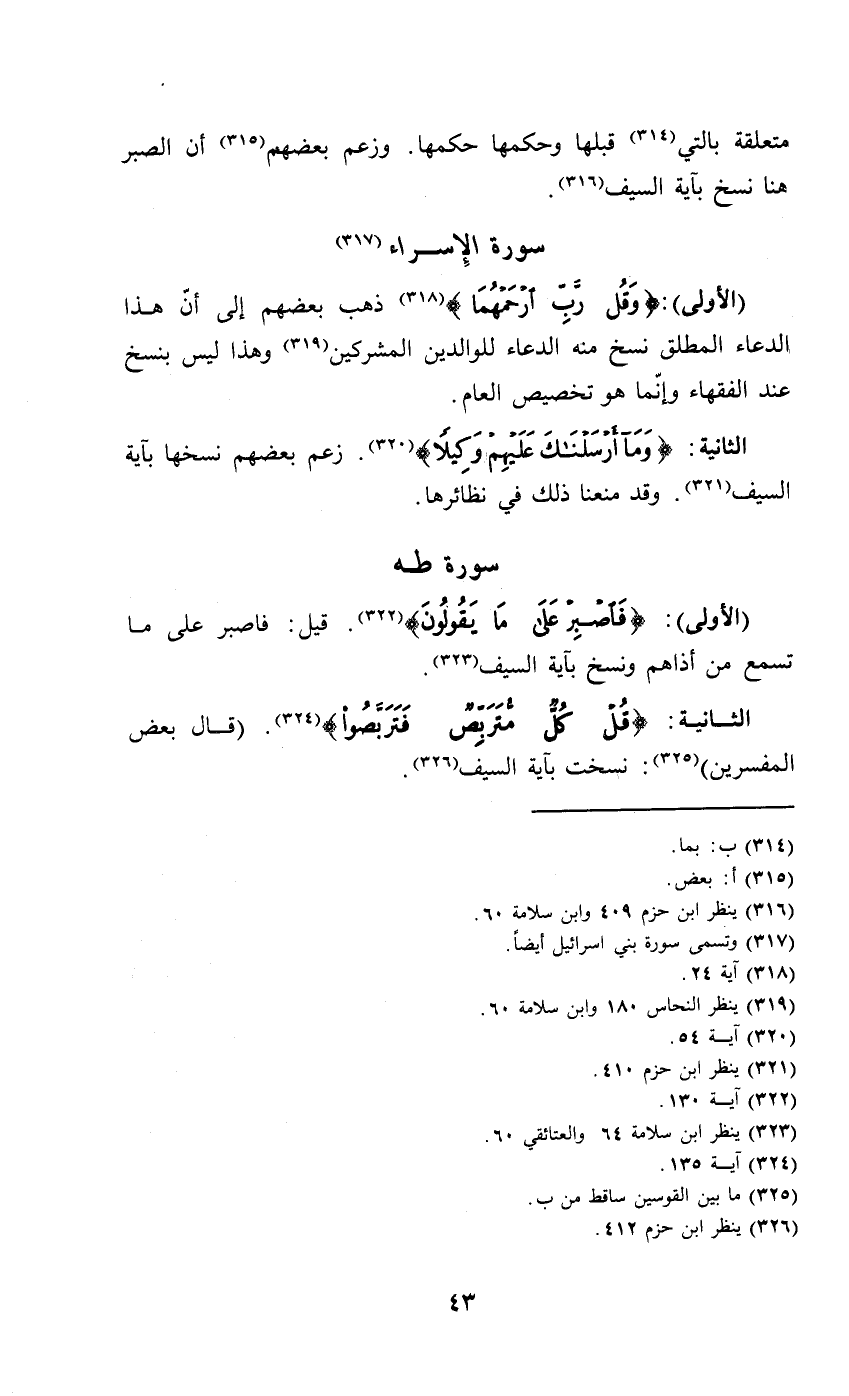 متعلقة بالتي(٣١٤) قبلها وحكمها حكمها. وزعم بعضهم(٣١٥) أن الصبر
هنا نسخ بآية السيف(٣١٦).
سورة الإســراء (٣١٧)
(الأولى):﴿وَقُل رَّبِّ ٱرْحَمْهُمَا﴾(٣١٨) ذهب بعضهم إلى أنّ هـذا
الدعاء المطلق نسخ منه الدعاء للوالدين المشركين(٣١٩) وهذا ليس بنسخ
عند الفقهاء وإنّما هو تخصيص العام.
الثانية: ﴿وَمَآ أَرْسَلْنَـٰكَ عَلَيْهِمْ وَكِيلًا﴾(٣٢٠). زعم بعضهم نسخها بآية
السيف(٣٢١). وقد منعنا ذلك في نظائرها.
سورة طـه
(الأولى): ﴿فَٱصْبِرْ عَلَىٰ مَا يَقُولُونَ﴾(٣٢٢). قيل: فاصبر على مـا
تسمع من أذاهم ونسخ بآية السيف(٣٢٣).
الثـــانيـة: ﴿قُلْ كُلٌّ مُّتَرَبِّصٌ فَتَرَبَّصُوا۟﴾(٣٢٤). (قـال بعض
المفسرين)(٣٢٥): نسخت بآية السيف(٣٢٦).
(٣١٤) ب: بما.
(٣١٥) أ: بعض.
(٣١٦) ينظر ابن حزم ٤٠٩ وابن سلامة ٦٠.
(٣١٧) وتسمى سورة بني اسرائيل أيضاً.
(٣١٨) آية ٢٤.
(٣١٩) ينظر النحاس ١٨٠ وابن سلامة ٦٠.
(٣٢٠) آيـة ٥٤.
(٣٢١) ينظر ابن حزم ٤١٠.
(٣٢٢) آيـة ١٣٠.
(٣٢٣) ينظر ابن سلامة ٦٤ والعتائقي ٦٠.
(٣٢٤) آيـة ١٣٥.
(٣٢٥) ما بين القوسين ساقط من ب.
(٣٢٦) ينظر ابن حزم ٤١٢.
٤٣